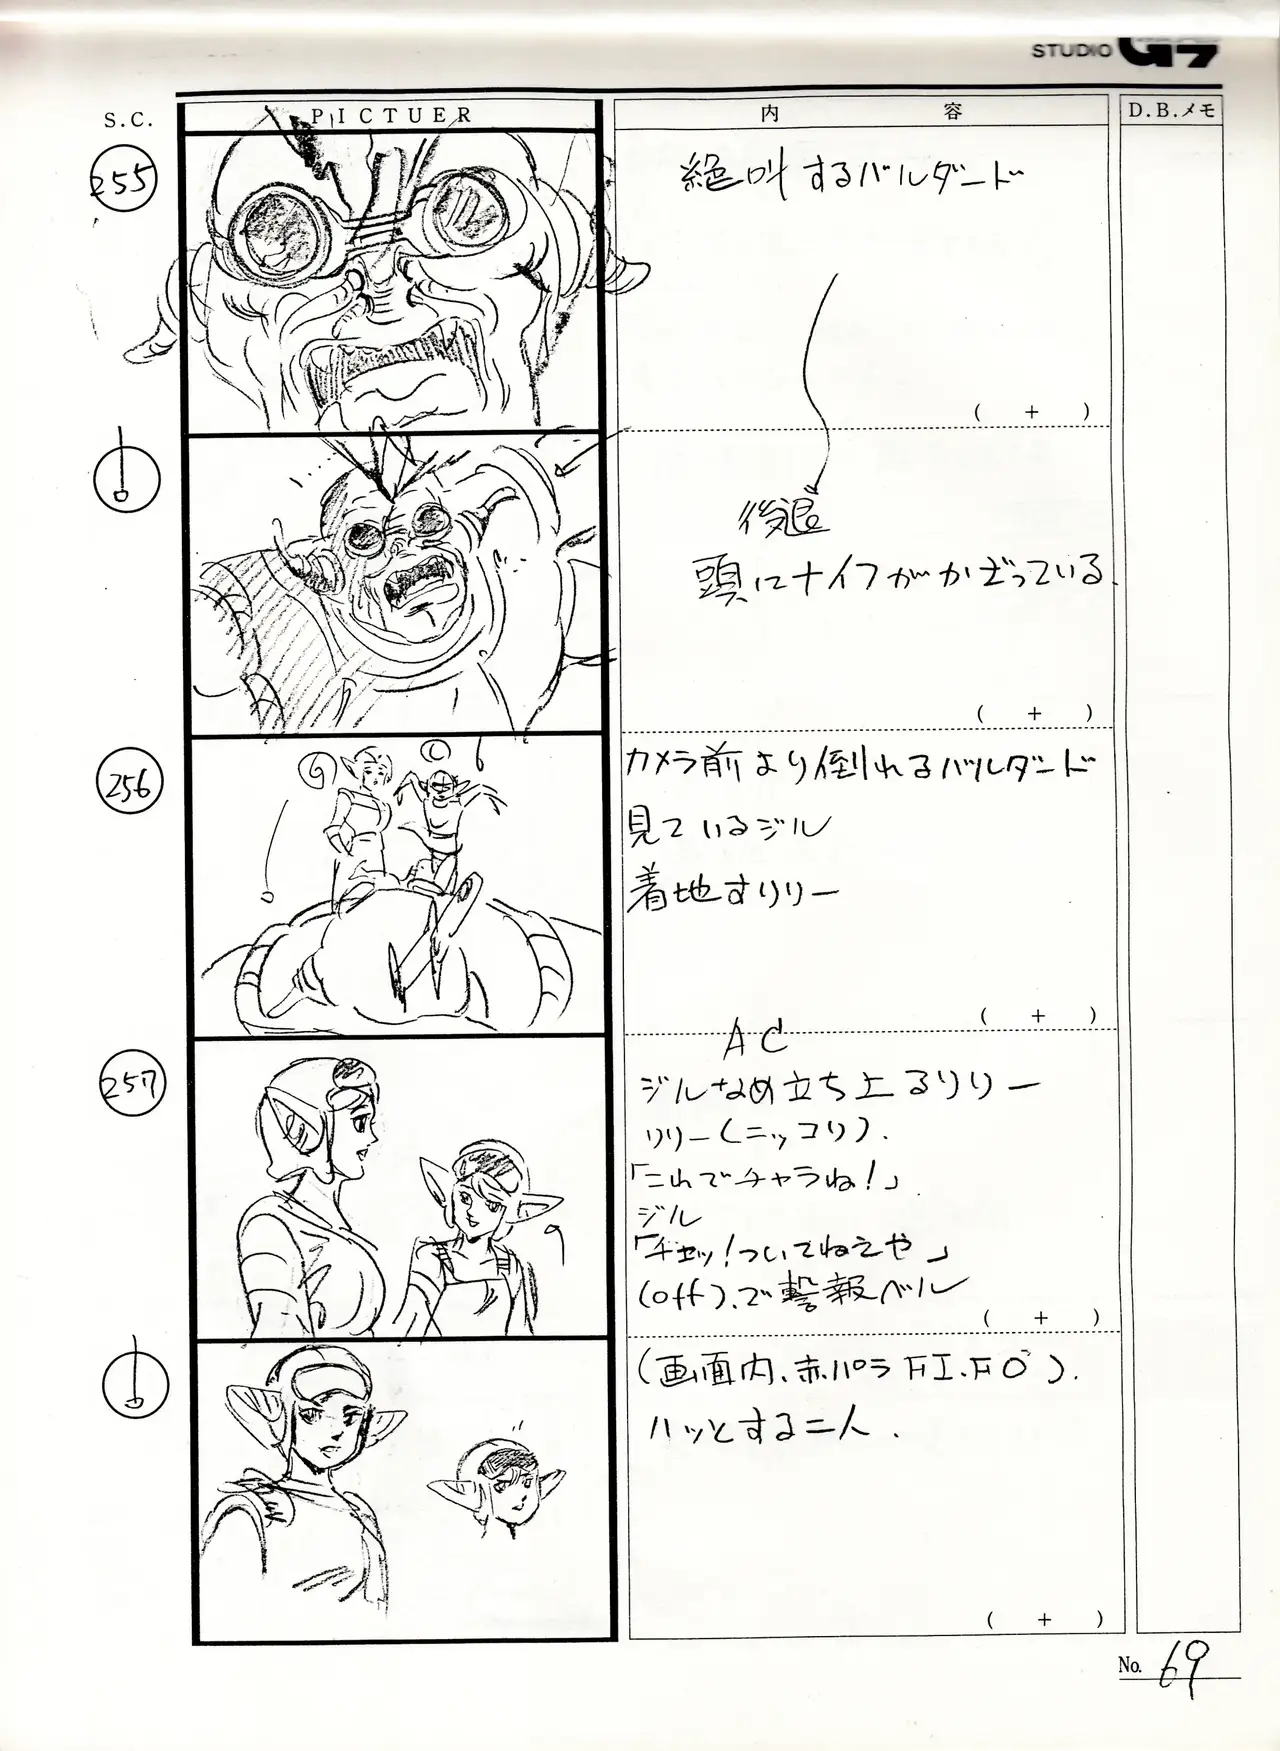 STUDIO G7
S.C.
PICTUER
内 容
D.B.メモ
255
絶叫するバルダード
( + )
後退
頭にナイフがかざっている.
( + )
256
カメラ前より倒れるバルダード
見ているジル
着地すリリー
( + )
257
AC
ジルなめ立ち上るリリー
リリー(ニッコリ).
「これでチャラね!」
ジル
「チェッ!ついてねえや」
(off).で警報ベル
( + )
(画面内、赤パラFI.FO).
ハッとする二人.
( + )
No. 69